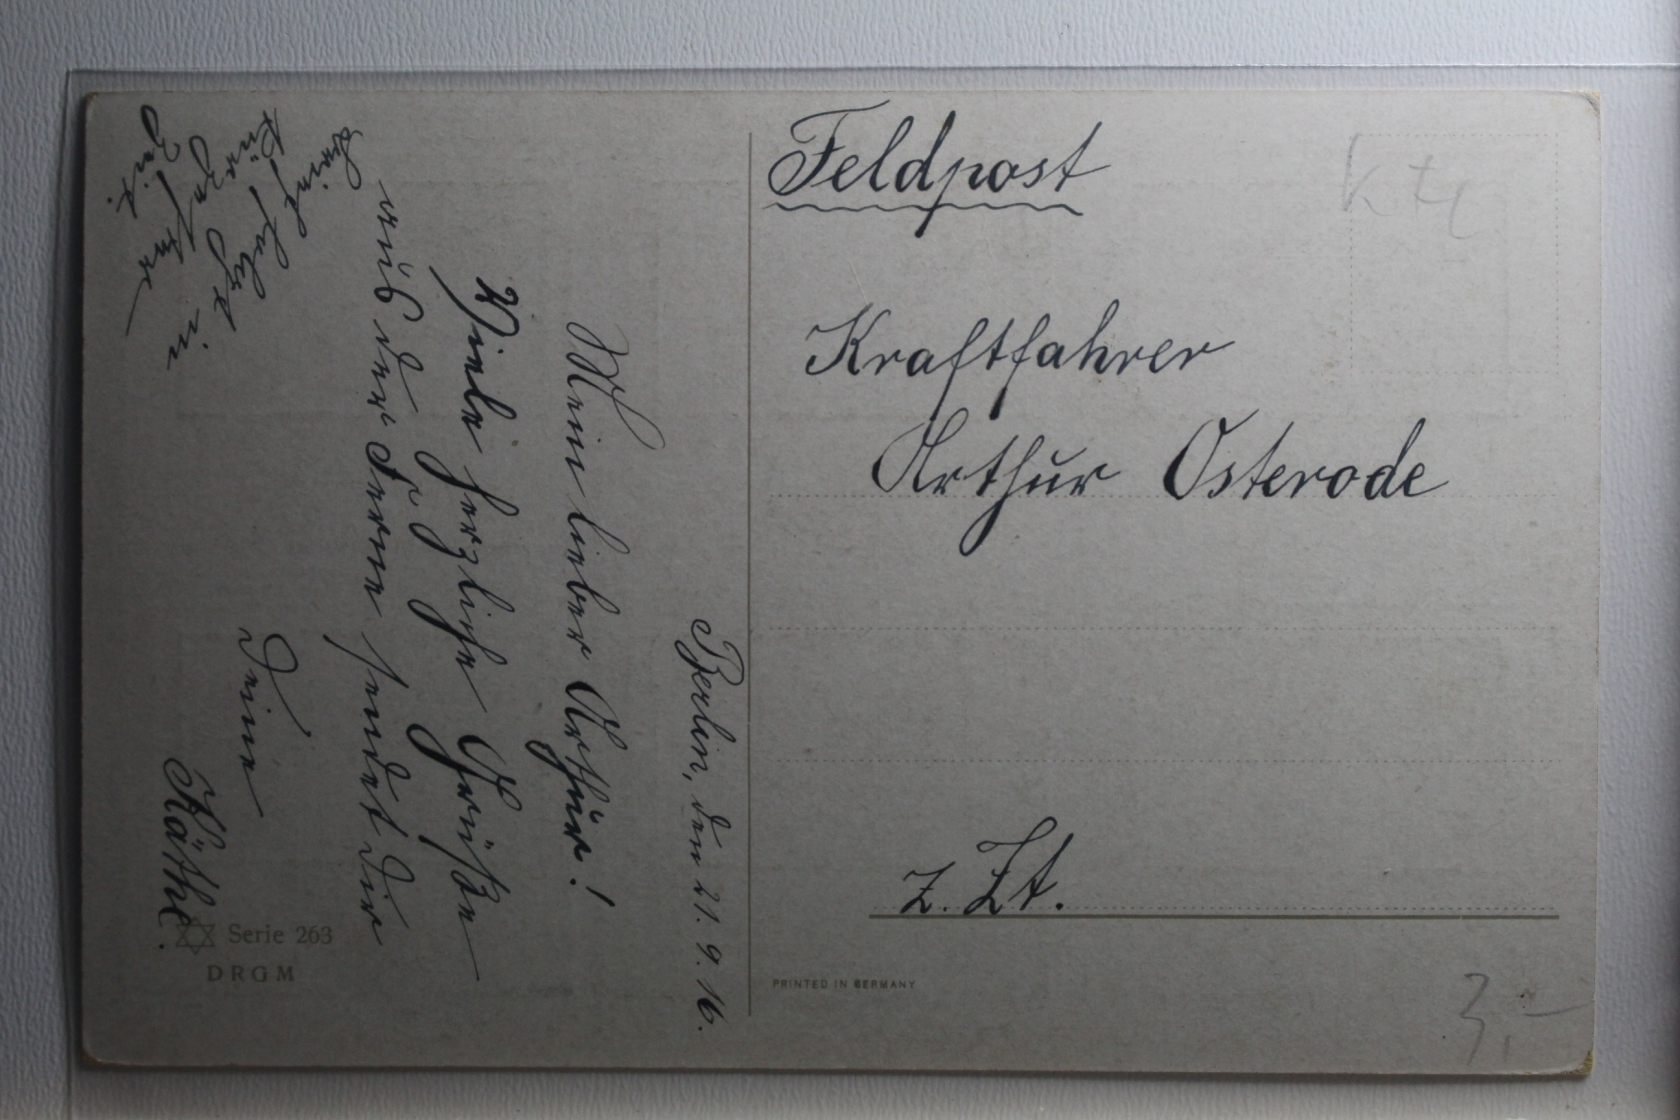 Feldpost
Kraftfahrer
Arthur Osterode
z. Zt.
PRINTED IN GERMANY
Berlin, den 21. 9. 16.
Mein lieber Arthur!
Viele herzliche Grüße
aus der Ferne sendet dir
Deine
Käthe.
Brief
folgt in
Zeit.
Serie 263
DRGM
3,-